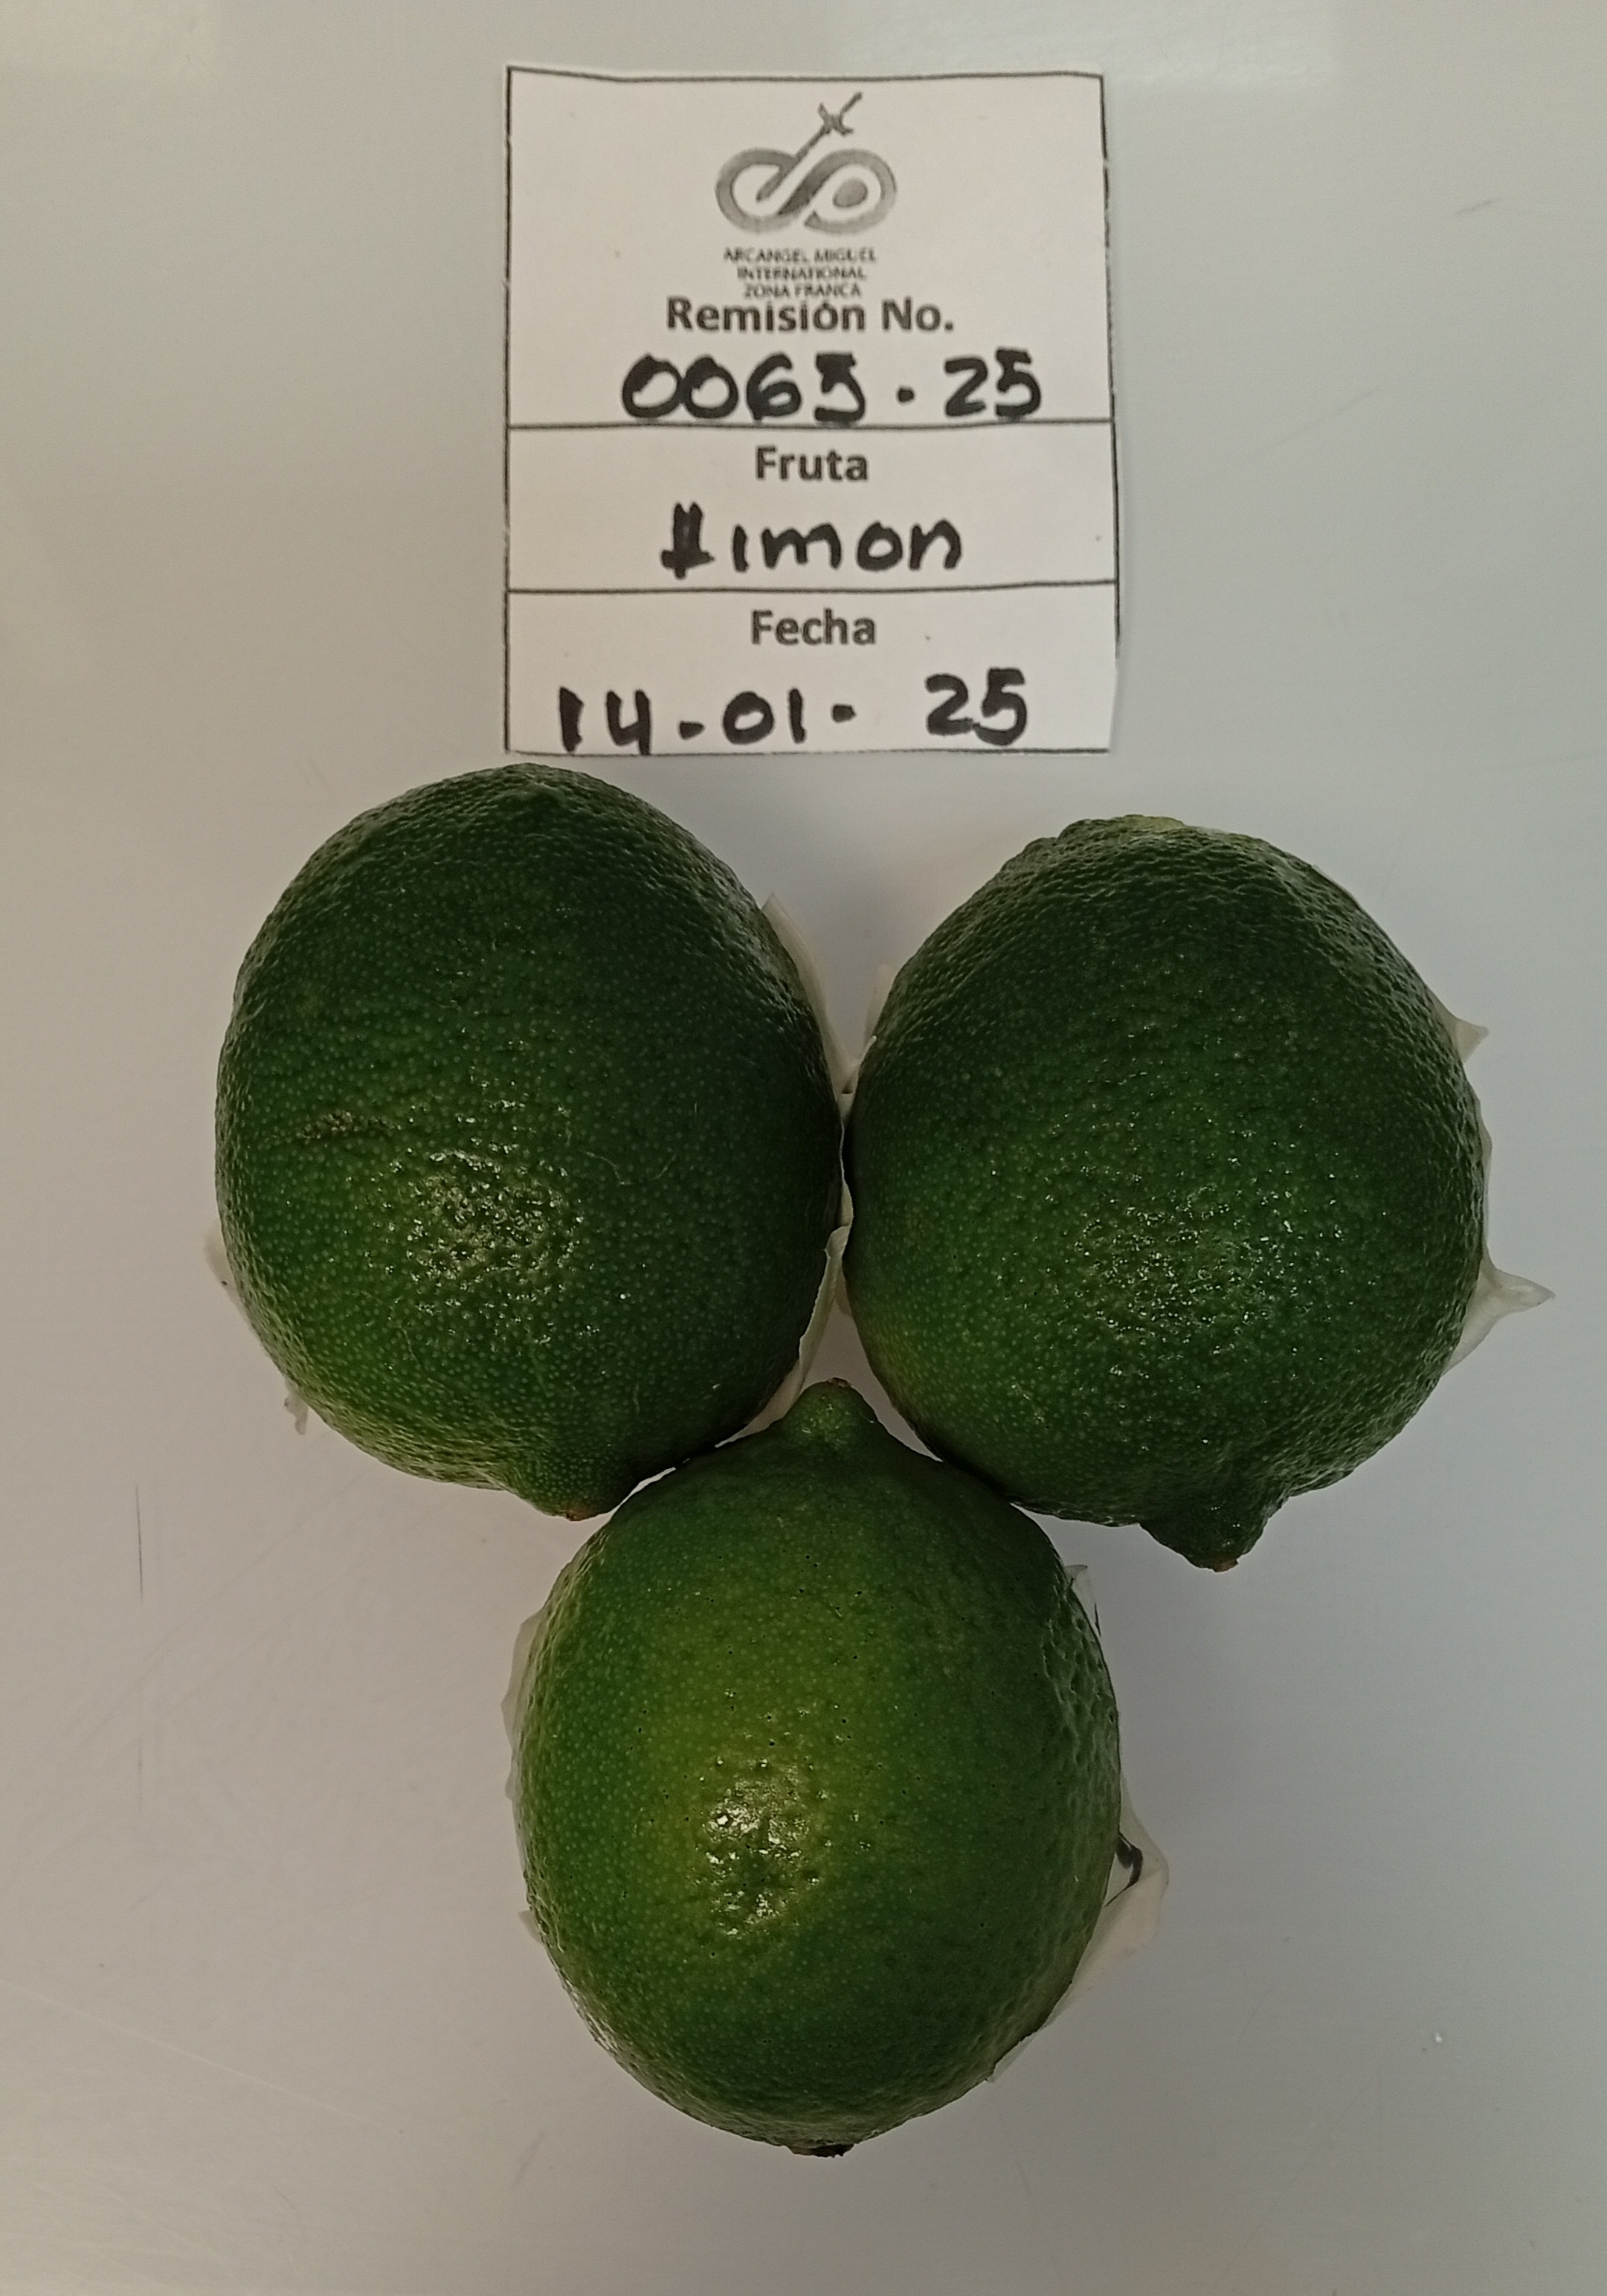 ARCANGEL MIGUEL
INTERNATIONAL
ZONA FRANCA
Remisión No.
0063.25
Fruta
Limon
Fecha
14-01-25